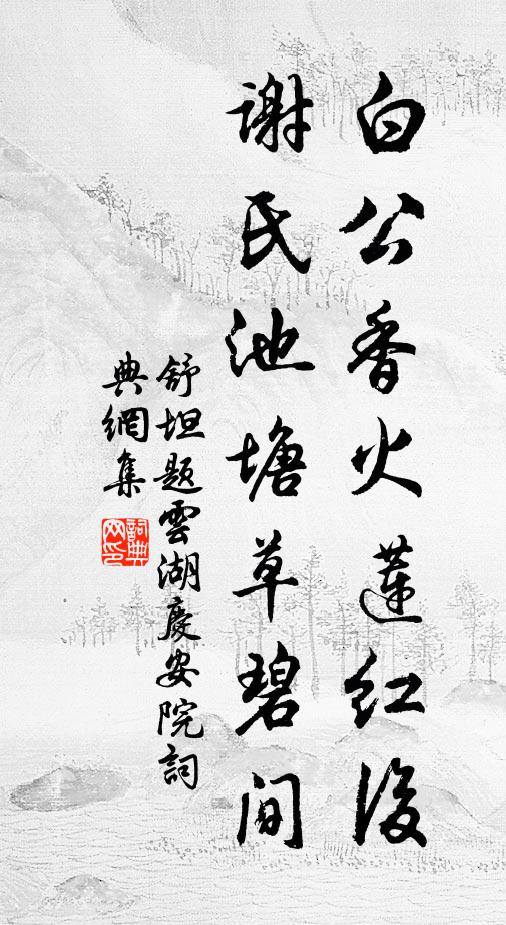 白公香火蓮紅後
謝氏池塘草碧間
舒坦題雲湖慶安院詞
典網集
詞典網印